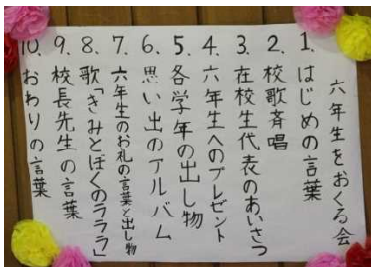 六年生をおくる会
1. はじめの言葉
2. 校歌斉唱
3. 在校生代表のあいさつ
4. 六年生へのプレゼント
5. 各学年の出し物
6. 思い出のアルバム
7. 六年生のお礼の言葉と出し物
8. 歌「きみとぼくのラララ」
9. 校長先生の言葉
10. おわりの言葉